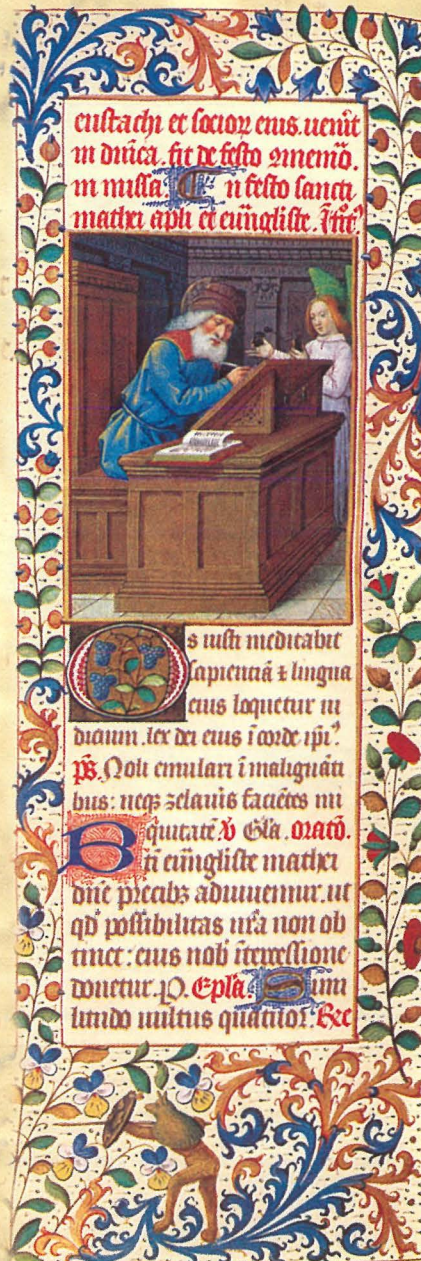 eustachi et socioꝝ eius. uenit
in dn̄ica. fit de festo ⁊memō.
in missa. In festo sancti
mathei apl̄i et euūgliste. Ītr̄
Os iusti meditabit᷑
sapienciā ⁊ lingua
eius loquetur iu
dicium. lex dei eius ī corde ip̄i⁹
p̄s. Noli emulari ī malignāti
bus: neqꝫ zelaūis faciētes ini
quitatē ℣ Gl̄a. oratō.
Bti euūgliste mathei
dn̄e precibꝫ adiuuemur. ut
qd̄ possibilitas nr̄a non ob
tinet: eius nob̄ ītercessione
donetur. P. Epl̄a. Simi
litudo uultus quatuor. Rec